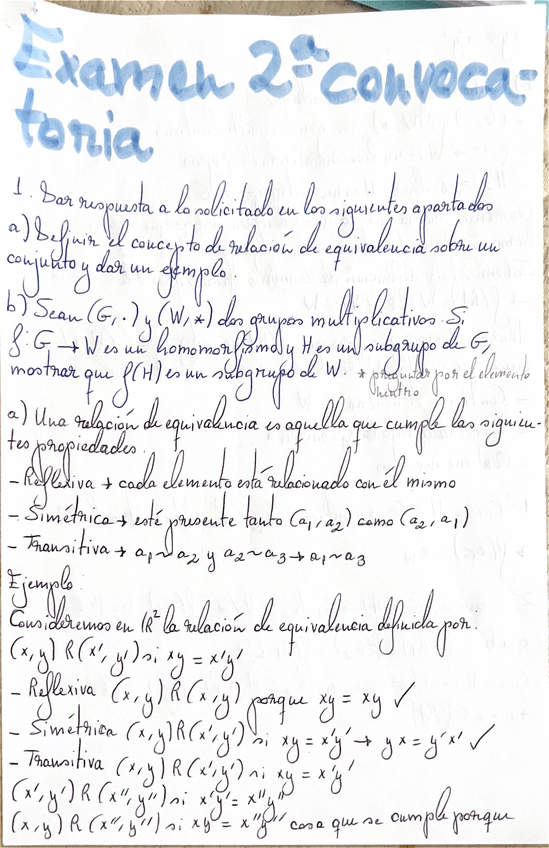 Examen 2ª convoca-
toria
1. Dar respuesta a lo solicitado en los siguientes apartados
a) Definir el concepto de relación de equivalencia sobre un
conjunto y dar un ejemplo.
b) Sean (G, ·) y (W, *) dos grupos multiplicativos. Si
f: G → W es un homomorfismo y H es un subgrupo de G,
mostrar que f(H) es un subgrupo de W. * preguntar por el elemento
neutro
a) Una relación de equivalencia es aquella que cumple las siguien-
tes propiedades.
- Reflexiva → cada elemento está relacionado con él mismo
- Simétrica → esté presente tanto (a₁, a₂) como (a₂, a₁)
- Transitiva → a₁~a₂ y a₂~a₃ → a₁~a₃
Ejemplo:
Consideremos en ℝ² la relación de equivalencia definida por:
(x, y) R (x', y') si xy = x'y'
- Reflexiva (x, y) R (x, y) porque xy = xy ✓
- Simétrica (x, y) R (x', y') si xy = x'y' → yx = y'x' ✓
- Transitiva (x, y) R (x', y') si xy = x'y'
(x', y') R (x'', y'') si x'y' = x''y''
(x, y) R (x'', y'') si xy = x''y'' cosa que se cumple porque